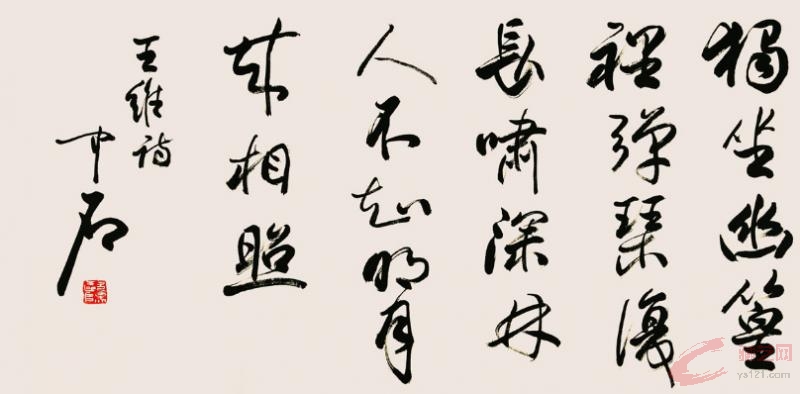 獨坐幽篁
裡彈琴復
長嘯深林
人不知明月
來相照
王維詩
中石
ys121.com